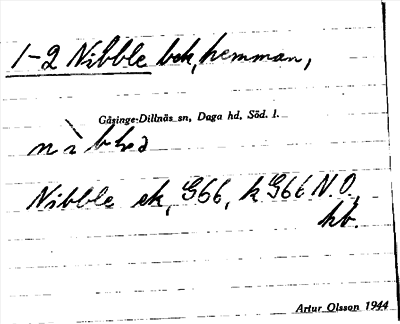 1-2 Nibble bek, hemman,
Gåsinge-Dillnäs sn, Daga hd, Söd. l.
Nibble ek, G66, k G66 N.O.
hb.
Artur Olsson 1944